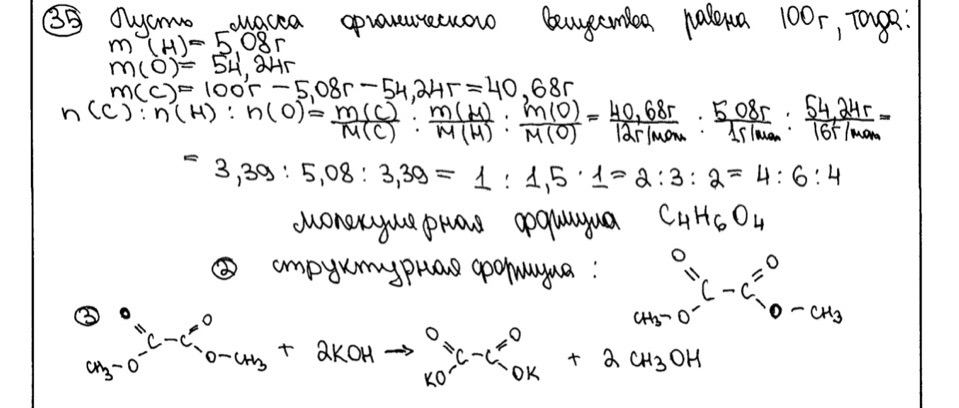 35 Пусть масса органического вещества равна 100г, тогда:
m (H) = 5,08г
m(O) = 54,24г
m(C) = 100г – 5,08г – 54,24г = 40,68г
n(C) : n(H) : n(O) = m(C)/M(C) : m(H)/M(H) : m(O)/M(O) = 40,68г/12г/моль : 5,08г/1г/моль : 54,24г/16г/моль =
= 3,39 : 5,08 : 3,39 = 1 : 1,5 : 1 = 2 : 3 : 2 = 4 : 6 : 4
молекулярная формула C4H6O4
2 структурная формула :
O O
C – C
CH3–O O – CH3
3 O O
C – C
CH3–O O–CH3 + 2KOH → O O
C – C
KO OK + 2 CH3OH